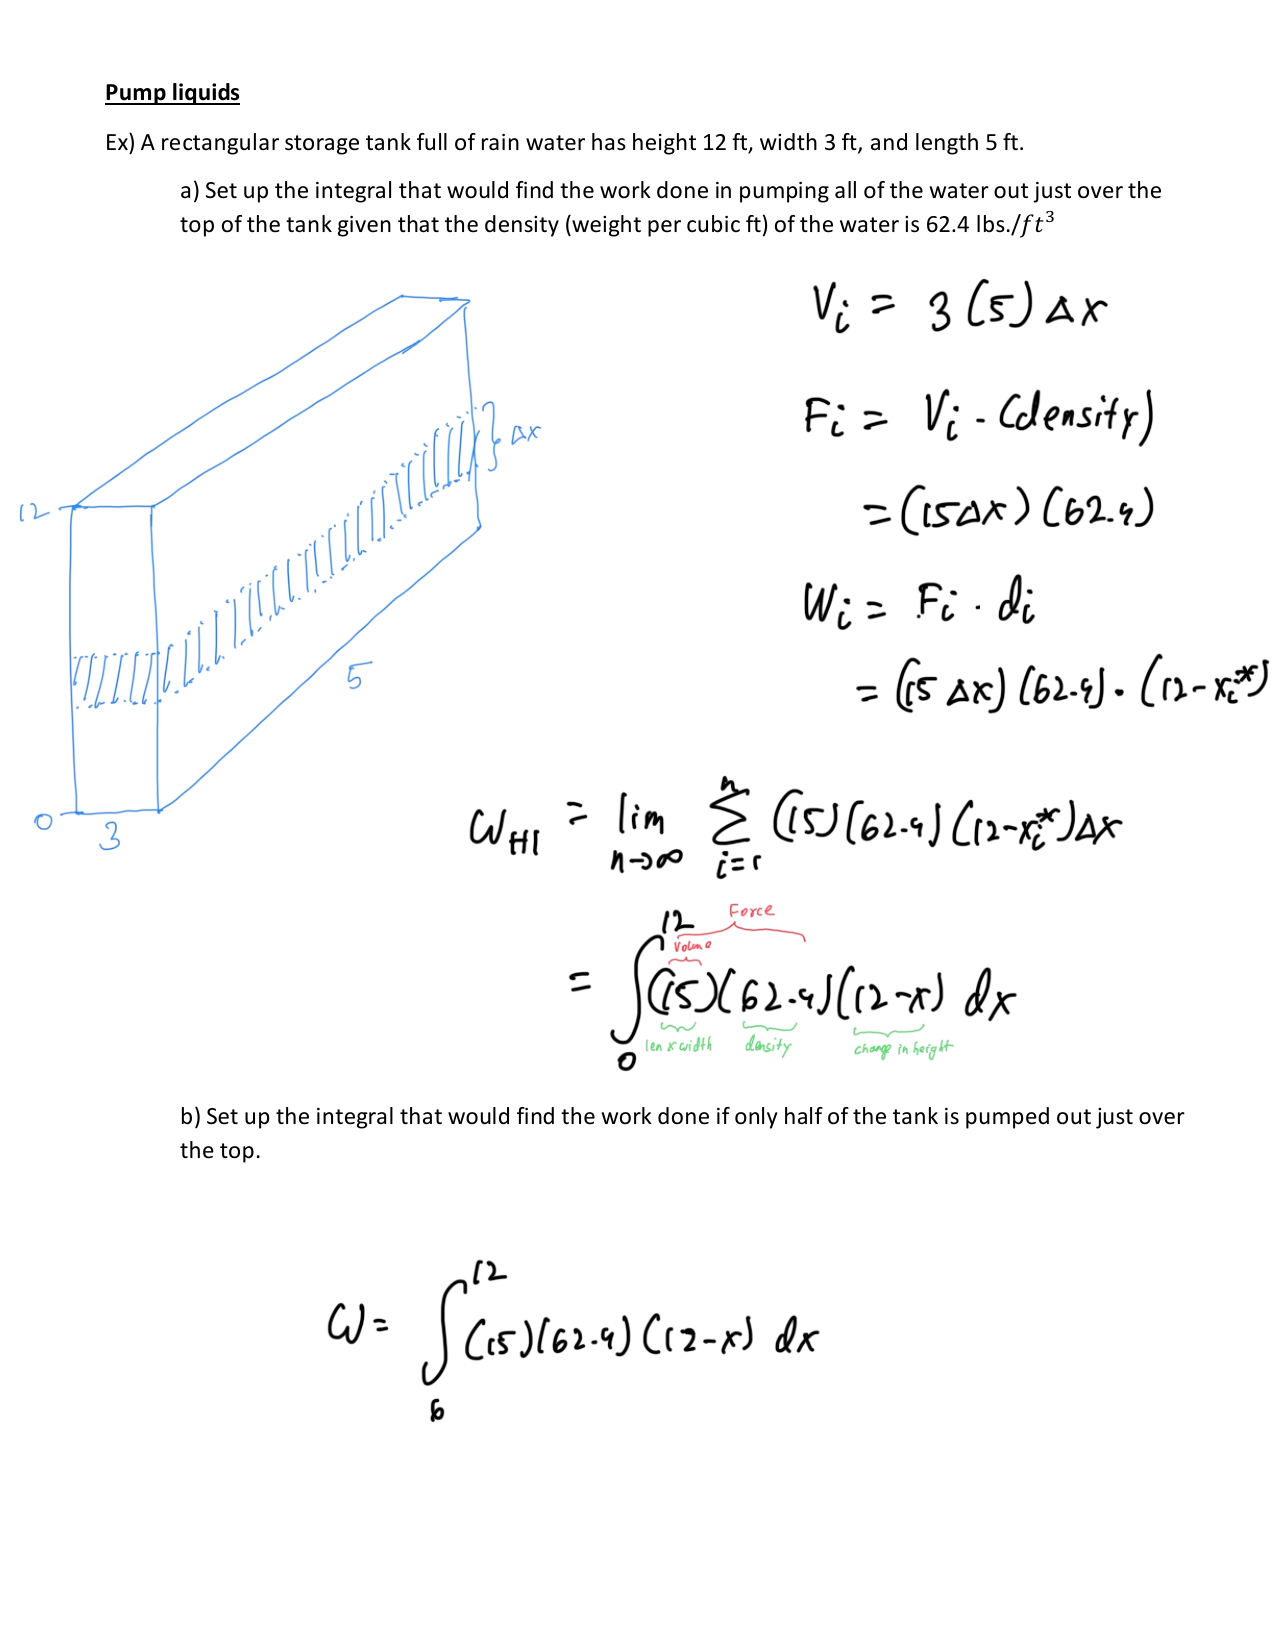 Pump liquids
Ex) A rectangular storage tank full of rain water has height 12 ft, width 3 ft, and length 5 ft.
a) Set up the integral that would find the work done in pumping all of the water out just over the
top of the tank given that the density (weight per cubic ft) of the water is 62.4 lbs./ft³
12
Δx
5
0
3
Vi = 3(5)Δx
Fi = Vi · (density)
= (15Δx)(62.4)
Wi = Fi · di
= (15 Δx)(62.4) · (12-xi*)
lim n→∞ Σ i=1 n (15)(62.4)(12-xi*)Δx
Force
Volume
= ∫ 0 12 (15)(62.4)(12-x) dx
len x width density change in height
b) Set up the integral that would find the work done if only half of the tank is pumped out just over
the top.
W = ∫ 6 12 (15)(62.4)(12-x) dx